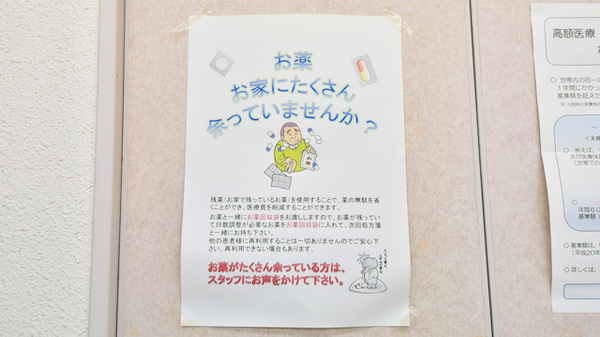 お薬
お家にたくさん
余っていませんか?
残薬(お家で残っているお薬)を使用することで、薬の無駄を省
くことができ、医療費を削減することができます。
お薬と一緒にお薬回収袋をお渡ししますので、お薬が残ってい
て日数調整が必要なお薬をお薬回収袋に入れて、次回処方箋
と一緒にお持ち下さい。
他の患者様に再利用することは一切ありませんのでご安心下
さい。再利用できない場合もあります。
お薬がたくさん余っている方は、
スタッフにお声をかけて下さい。
高額医療
○ 世帯内の同一の
1年間にかかっ
基準額を超えた